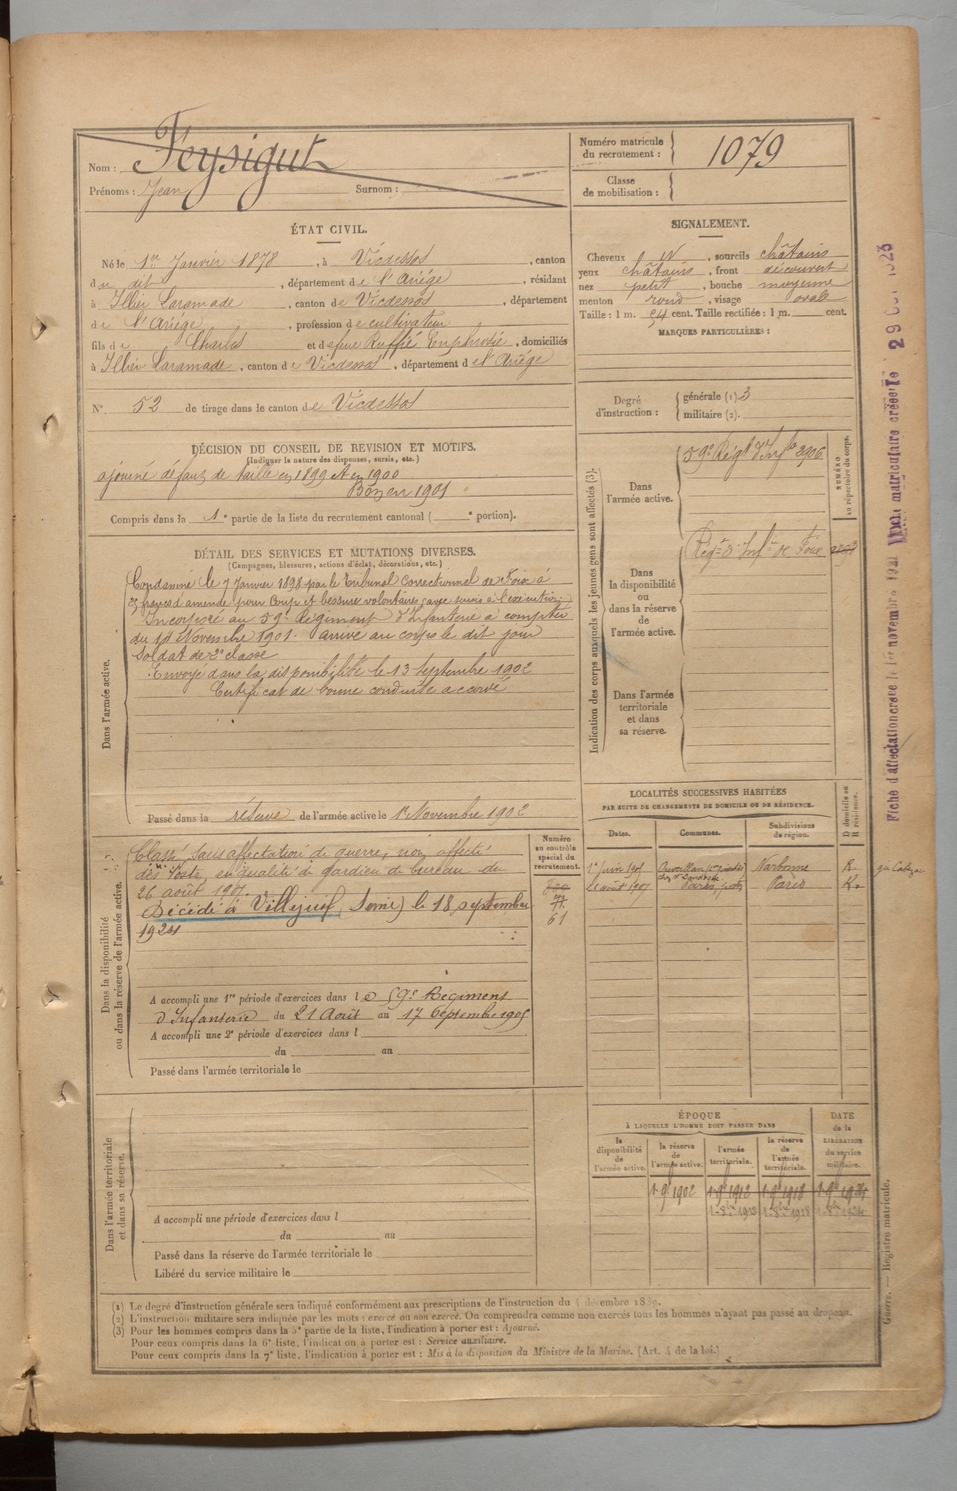 Nom : Feysigut
Prénoms : Jean Surnom :
Numéro matricule du recrutement : 1079
Classe de mobilisation :
ÉTAT CIVIL.
Né le 1er Janvier 1878, à Vicdessos, canton
du dit, département de l'Ariège, résidant
à Illier Laramade, canton de Vicdessos, département
de l'Ariège, profession de cultivateur
fils de Charles et de feue Ruffié Euphrosie, domiciliés
à Illier Laramade, canton de Vicdessos, département de l'Ariège
N° 52 de tirage dans le canton de Vicdessos
SIGNALEMENT.
Cheveux et, sourcils châtains
yeux châtains, front découvert
nez petit, bouche moyenne
menton rond, visage ovale
Taille : 1 m. 54 cent. Taille rectifiée : 1 m. cent.
MARQUES PARTICULIÈRES :
Degré d'instruction : générale (1) 3
militaire (2).
DÉCISION DU CONSEIL DE REVISION ET MOTIFS.
(Indiquer la nature des dispenses, sursis, etc.)
ajourné défaut de taille en 1899 et en 1900
Bon en 1901
Compris dans la 1e partie de la liste du recrutement cantonal ( e portion).
DÉTAIL DES SERVICES ET MUTATIONS DIVERSES.
(Campagnes, blessures, actions d'éclat, décorations, etc.)
Dans l'armée active.
Condamné le 7 Janvier 1898 par le Tribunal Correctionnel de Foix à
francs d'amende pour coups et blessure volontaires avec sursis à l'exécution
Incorporé au 59e Régiment d'Infanterie à compter
du Novembre 1901. arrivé au corps le dit jour
Soldat de 2e classe
Envoyé dans la disponibilité le 13 Septembre 1902
Certificat de bonne conduite accordé
Passé dans la réserve de l'armée active le 1er Novembre 1902
Indication des corps auxquels les jeunes gens sont affectés (3).
NUMÉRO au répertoire du corps.
Dans l'armée active.
59e Régt d'Infie 3906
Dans la disponibilité ou dans la réserve de l'armée active.
Régt d'Infie de Foix
Dans l'armée territoriale et dans sa réserve.
Dans la disponibilité ou dans la réserve de l'armée active.
Numéro au contrôle spécial du recrutement.
61
Classé sans affectation de guerre, non affecté
des Postes, en qualité de gardien de bureau du
26 août 1907.
Décédé à Villejuif (Seine) le 18 septembre
1921
A accompli une 1re période d'exercices dans le 59e Régiment
d'Infanterie du 21 Août au 17 Septembre 1905
A accompli une 2e période d'exercices dans l
du au
Passé dans l'armée territoriale le
LOCALITÉS SUCCESSIVES HABITÉES
PAR SUITE DE CHANGEMENTS DE DOMICILE OU DE RÉSIDENCE.
Dates. Communes. Subdivisions de région. D domicile ou R résidence.
Narbonne R.
août 1907 Paris Paris R.
Dans l'armée territoriale et dans sa réserve.
A accompli une période d'exercices dans l
du au
Passé dans la réserve de l'armée territoriale le
Libéré du service militaire le
ÉPOQUE
À LAQUELLE L'HOMME DOIT PASSER DANS
la disponibilité de l'armée active.
la réserve de l'armée active.
l'armée territoriale.
la réserve de l'armée territoriale.
DATE de la LIBÉRATION du service militaire.
1 9bre 1902 1 9bre 1912 1 9bre 1918
(1) Le degré d'instruction générale sera indiqué conformément aux prescriptions de l'instruction du 4 décembre 1889.
(2) L'instruction militaire sera indiquée par les mots : exercé ou non exercé. On comprendra comme non exercés tous les hommes n'ayant pas passé au drapeau.
(3) Pour les hommes compris dans la 5e partie de la liste, l'indication à porter est : Ajourné.
Pour ceux compris dans la 6e liste, l'indication à porter est : Service auxiliaire.
Pour ceux compris dans la 7e liste, l'indication à porter est : Mis à la disposition du Ministre de la Marine. (Art. 4 de la loi.)
Guerre. — Registre matricule.